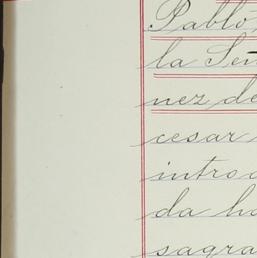 Pablo
la Señ
nez de
cesar
introd
da ha
sagra